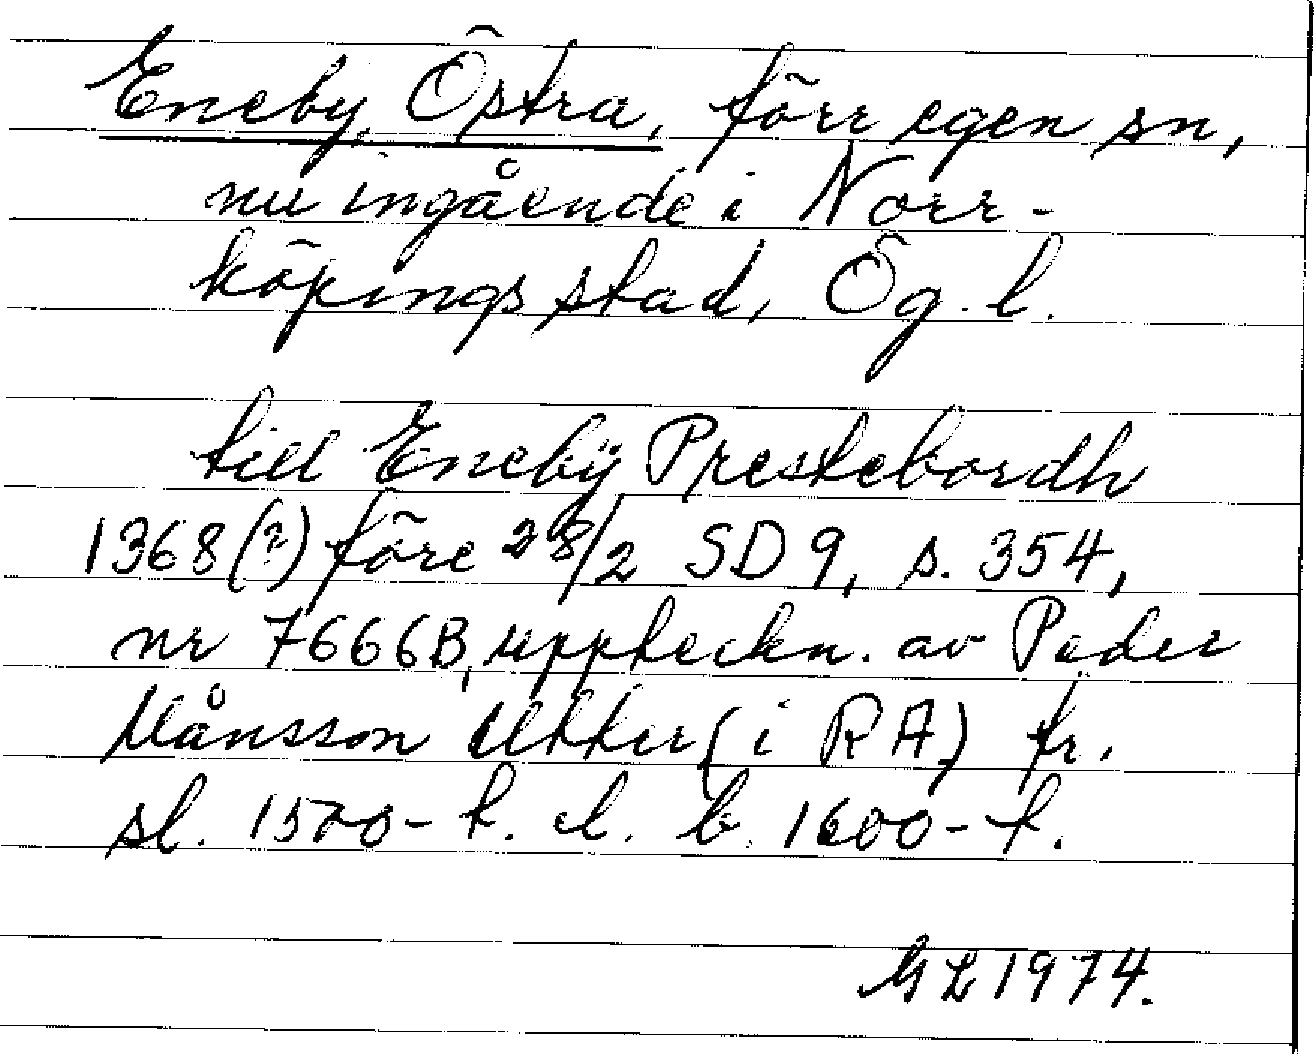 Eneby, Östra, förr egen sn,
nu ingående i Norr-
köpings stad, Ög. l.
till Enebÿ Prestebordh
1368(?) före 28/2 SD 9, s. 354,
nr 7666B, uppteckn. av Peder
Månsson Utter (i RA) fr.
sl. 1500-t. el. b. 1600-t.
GL 1974.